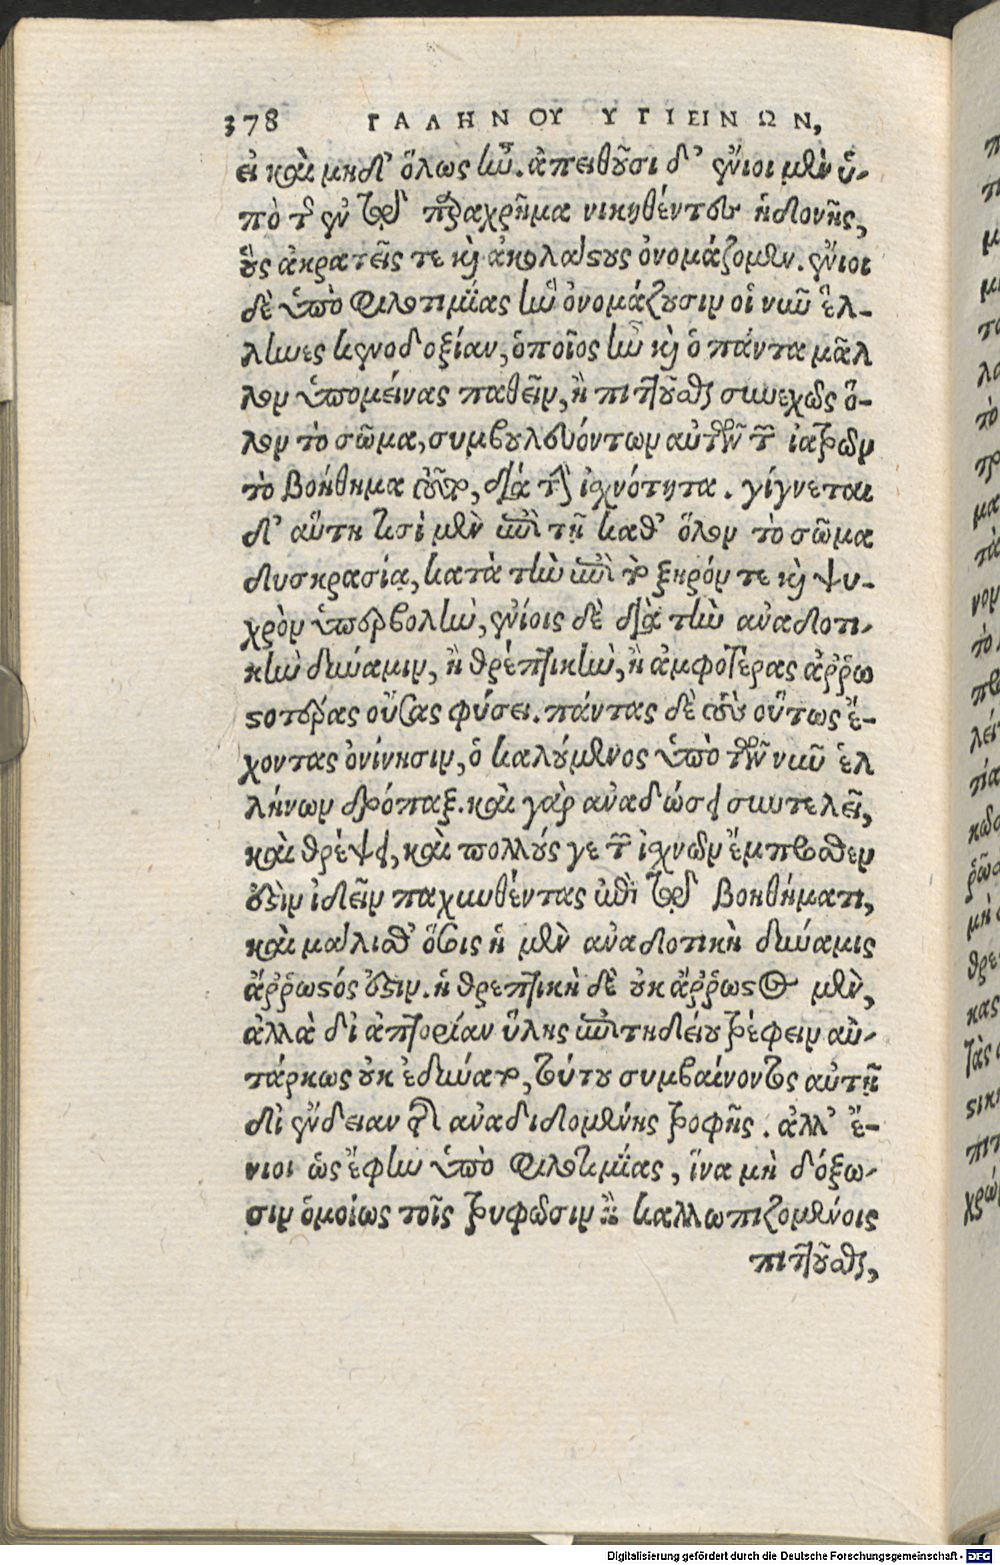 378 ΓΑΛΗΝΟΥ ΥΓΙΕΙΝΩΝ,
εἰ καὶ μηδ' ὅλως ἦν. ἀπειθοῦσι δ' ἔνιοι μὲν ὑ-
πὸ τῆς ἐν τῷ παραχρῆμα νικηθέντες ἡδονῆς,
οὓς ἀκρατεῖς τε καὶ ἀκολάστους ὀνομάζομεν. ἔνιοι
δὲ ὑπὸ φιλοτιμίας ἣν ὀνομάζουσιν οἱ νῦν ἕλ-
ληνες κενοδοξίαν, ὁποῖος ἦν καὶ ὁ πάντα μᾶλ
λον ὑπομείνας παθεῖν, ἢ πιττοῦσθαι συνεχῶς ὅ-
λον τὸ σῶμα, συμβουλευόντων αὐτῷ τῶν ἰατρῶν
τὸ βοήθημα τοῦτο, διὰ τὴν ἰσχνότητα. γίγνεται
δ' αὕτη τισὶ μὲν ἐπὶ τῇ καθ' ὅλον τὸ σῶμα
δυσκρασίᾳ, κατὰ τὴν ἐπὶ τὸ ξηρόν τε καὶ ψυ-
χρὸν ὑπερβολὴν, ἐνίοις δὲ διὰ τὴν ἀναδοτι-
κὴν δύναμιν, ἢ θρεπτικὴν, ἢ ἀμφοτέρας ἀῤῥω
στοτέρας οὔσας φύσει. πάντας δὲ τοὺς οὕτως ἔ-
χοντας ὀνίνησιν, ὁ καλούμενος ὑπὸ τῶν νῦν ἑλ
λήνων δρόπαξ. καὶ γὰρ ἀναδώσει συντελεῖ,
καὶ θρέψει, καὶ πολλούς γε τῶν ἰσχνῶν ἔμπροσθεν
ἔστιν ἰδεῖν παχυνθέντας ἐπὶ τῷ βοηθήματι,
καὶ μάλισθ' ὅσοις ἡ μὲν ἀναδοτικὴ δύναμις
ἄῤῥωστός ἐστιν. ἡ θρεπτικὴ δὲ οὐκ ἄῤῥωστος μὲν,
ἀλλὰ δι' ἀπορίαν ὕλης ἐπιτηδείου τρέφειν αὐ-
τάρκως οὐκ ἐδύνατο, τούτου συμβαίνοντος αὐτῇ
δι' ἔνδειαν τῆς ἀναδιδομένης τροφῆς. ἀλλ' ἔ-
νιοι ὡς ἔφην ὑπὸ φιλοτιμίας, ἵνα μὴ δόξω-
σιν ὁμοίως τοῖς τρυφῶσιν ἢ καλλωπιζομένοις
πιττοῦσθαι,
Digitalisierung gefördert durch die Deutsche Forschungsgemeinschaft - DFG